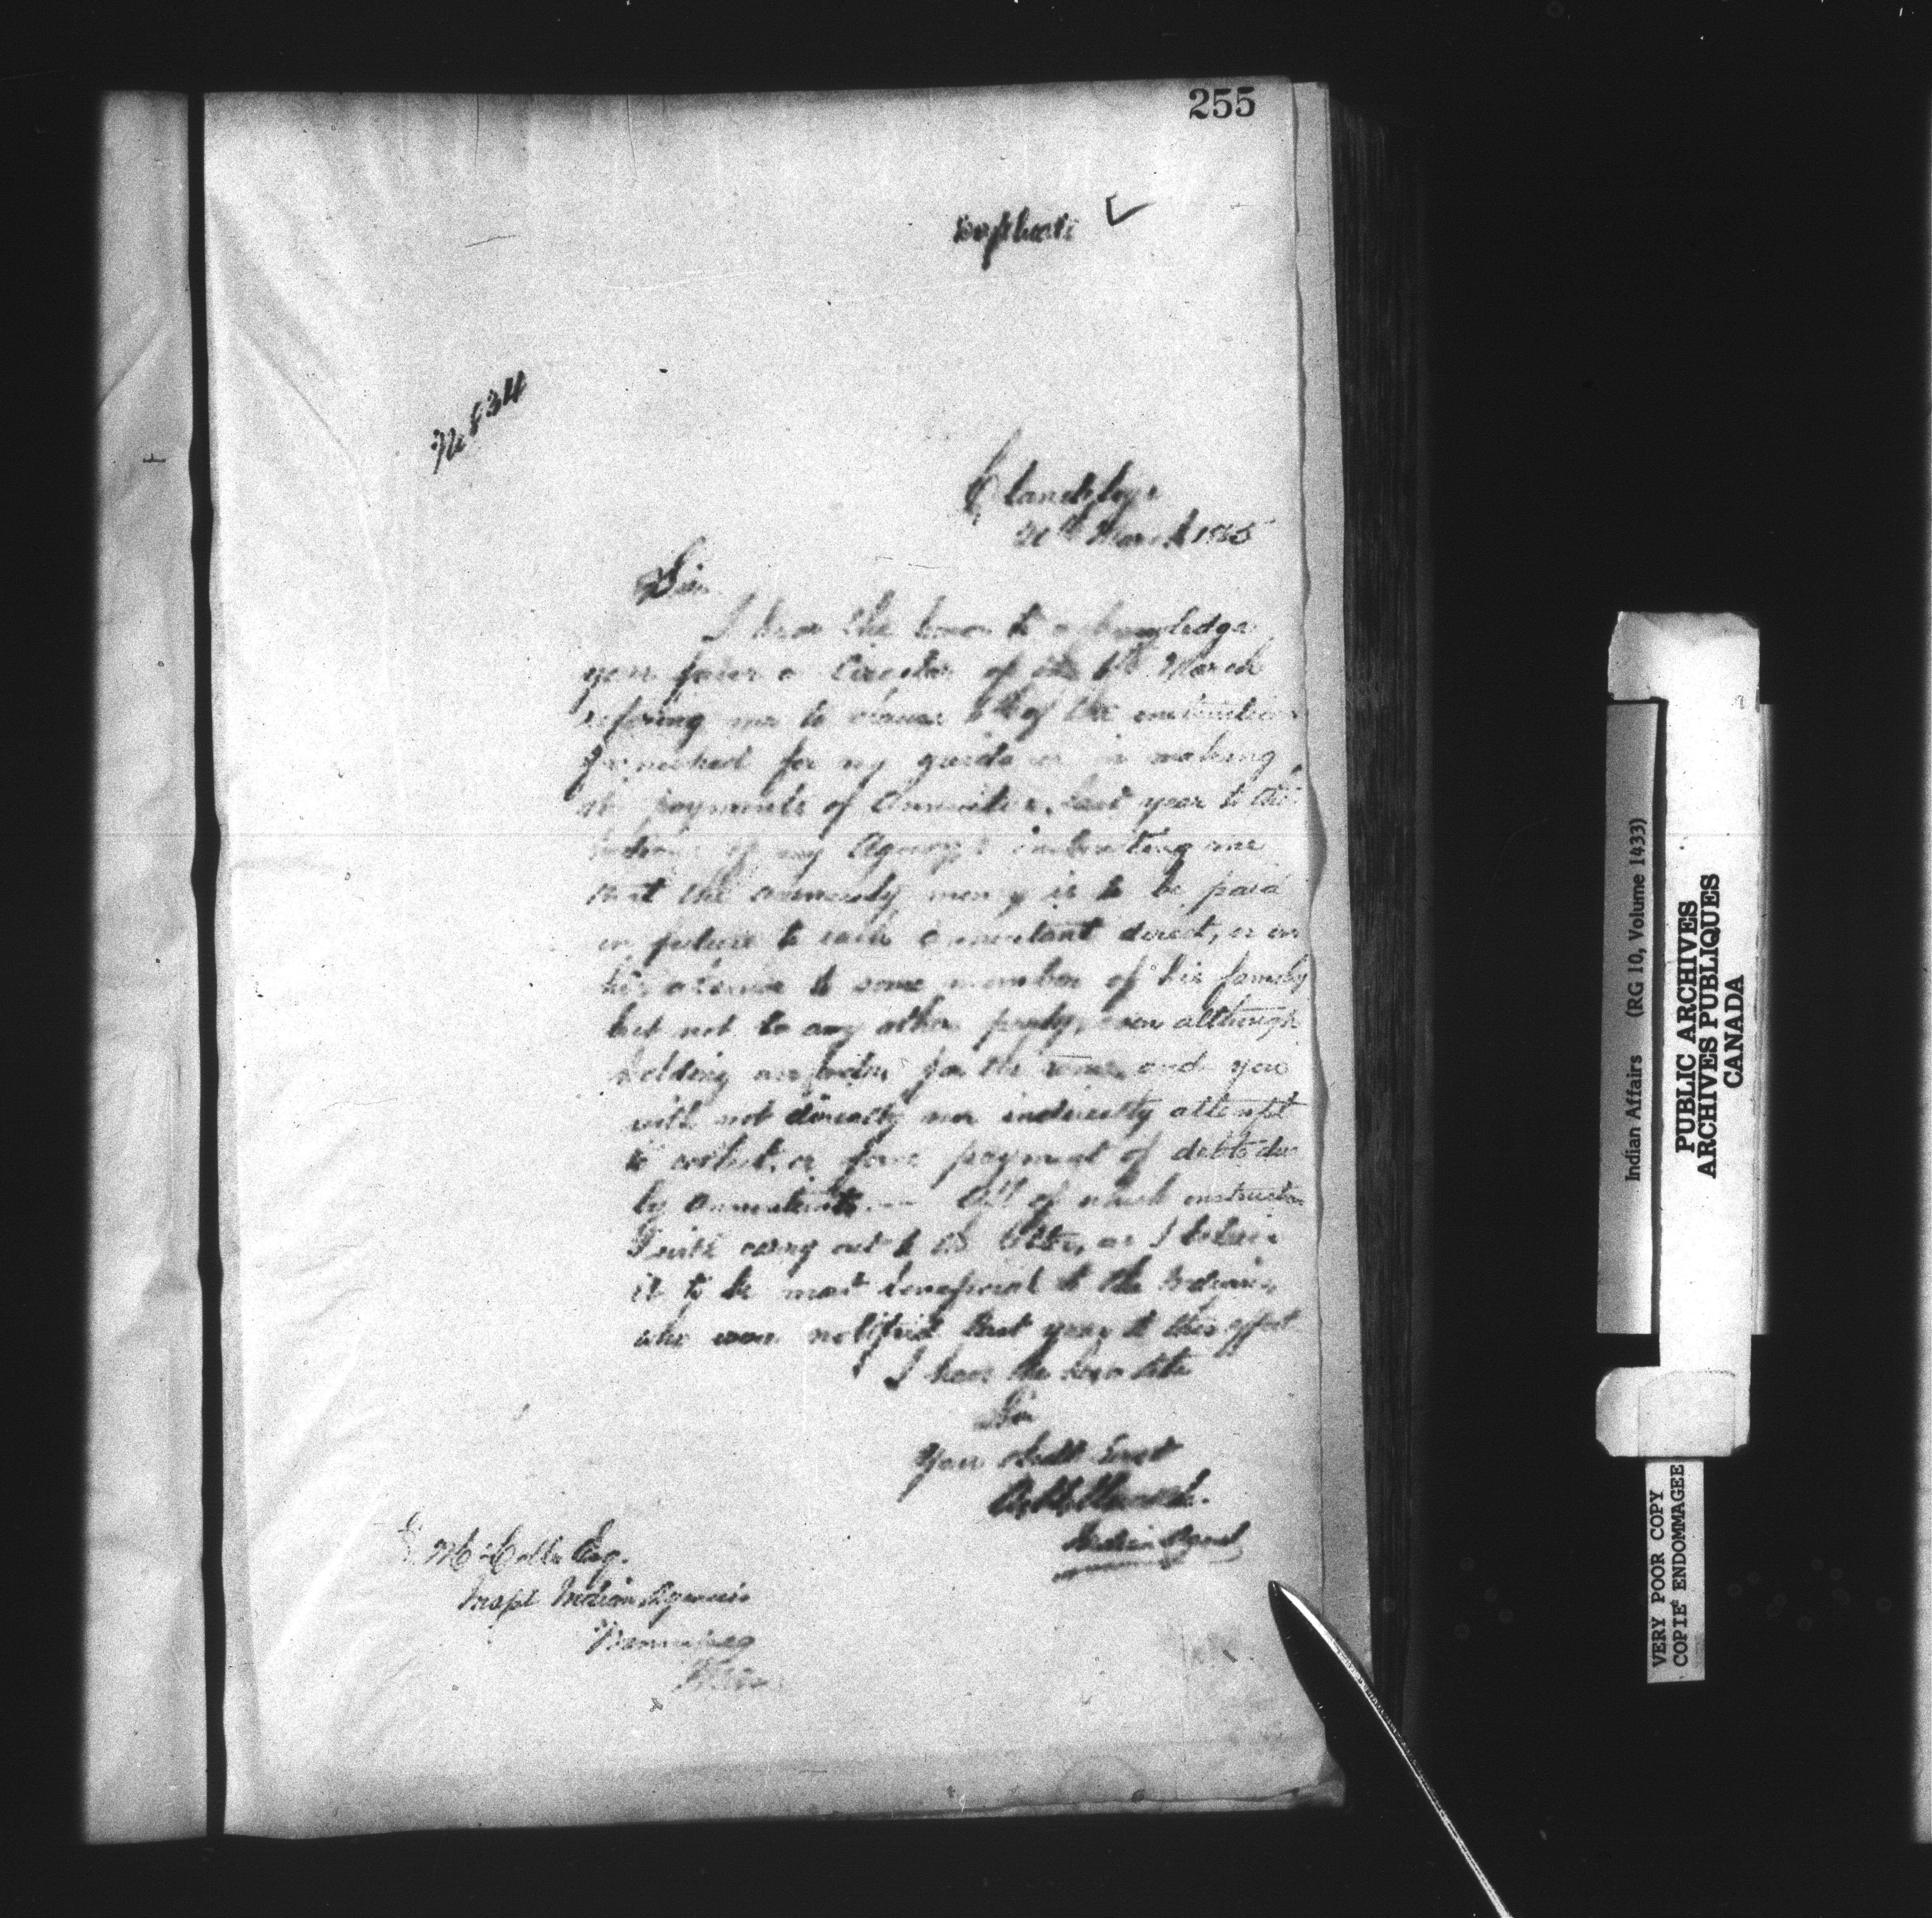 255
Duplicate
No 834
Clandeboye
20th March 1885
Sir
I have the honor to acknowledge
your favor a Circular of the 6th March
refering me to clause 6th of the instructions
furnished for my guidance in making
the payments of Annuities last year to the
Indians of my Agency instructing me
that the annuity money is to be paid
in future to each annuitant direct, or in
his absence to some member of his family
but not to any other party, even although
holding an order for the same, and you
will not directly nor indirectly attempt
to collect, or force payment of debts due
by annuitants. — All of which instruction
I will carry out to the letter, as I believe
it to be most beneficial to the Indians,
who were notified last year to this effect
I have the honor to be
Sir
Your obedt Servt
Indian Agent
E. McColl Esq.
Inspt Indian Agencies
Winnipeg
Indian Affairs (RG 10, Volume 1433)
PUBLIC ARCHIVES
ARCHIVES PUBLIQUES
CANADA
VERY POOR COPY
COPIE ENDOMMAGEE